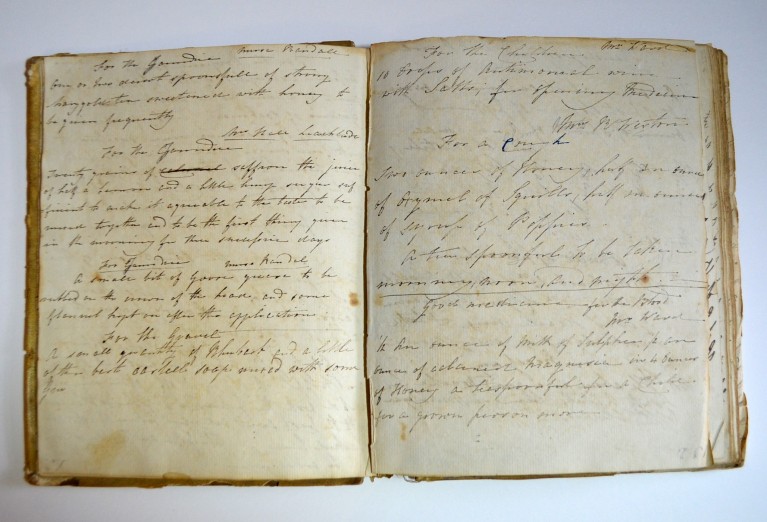 For the Jaundice Nurse Randall
One or two desert spoonsfull of strong
sweetened with honey to
be given frequently
Mrs
For the Jaundice
Twenty grains of saffron the juice
of half a lemon and a little lump sugar suf
ficient to make it agreeable to the taste to be
mixed together and to be the first thing given
in the morning for three successive days
For Jaundice Nurse Randal
A small bit of Goose grease to be
rubbed on the crown of the head, and some
flannel kept on after the application
For the Gravel
A small quantity of Rhubarb and a little
of the best castile soap mixed with some
For the Children Mrs Ward
10 Drops of Antimonial wine
with Salts, for opening Medicine
Mrs N Weston
For a Cough
Two ounces of Honey, half an ounce
of Oxymel of Squills, half an ounce
of syrup of Poppies.
A tea spoonful to be taken
morning, noon, and night
Good medicine for the Blood
Mrs Ward
An ounce of Milk of Sulpher,
ounce of Magnesia in ounces
of Honey a teaspoonful for a Child
for a grown person more